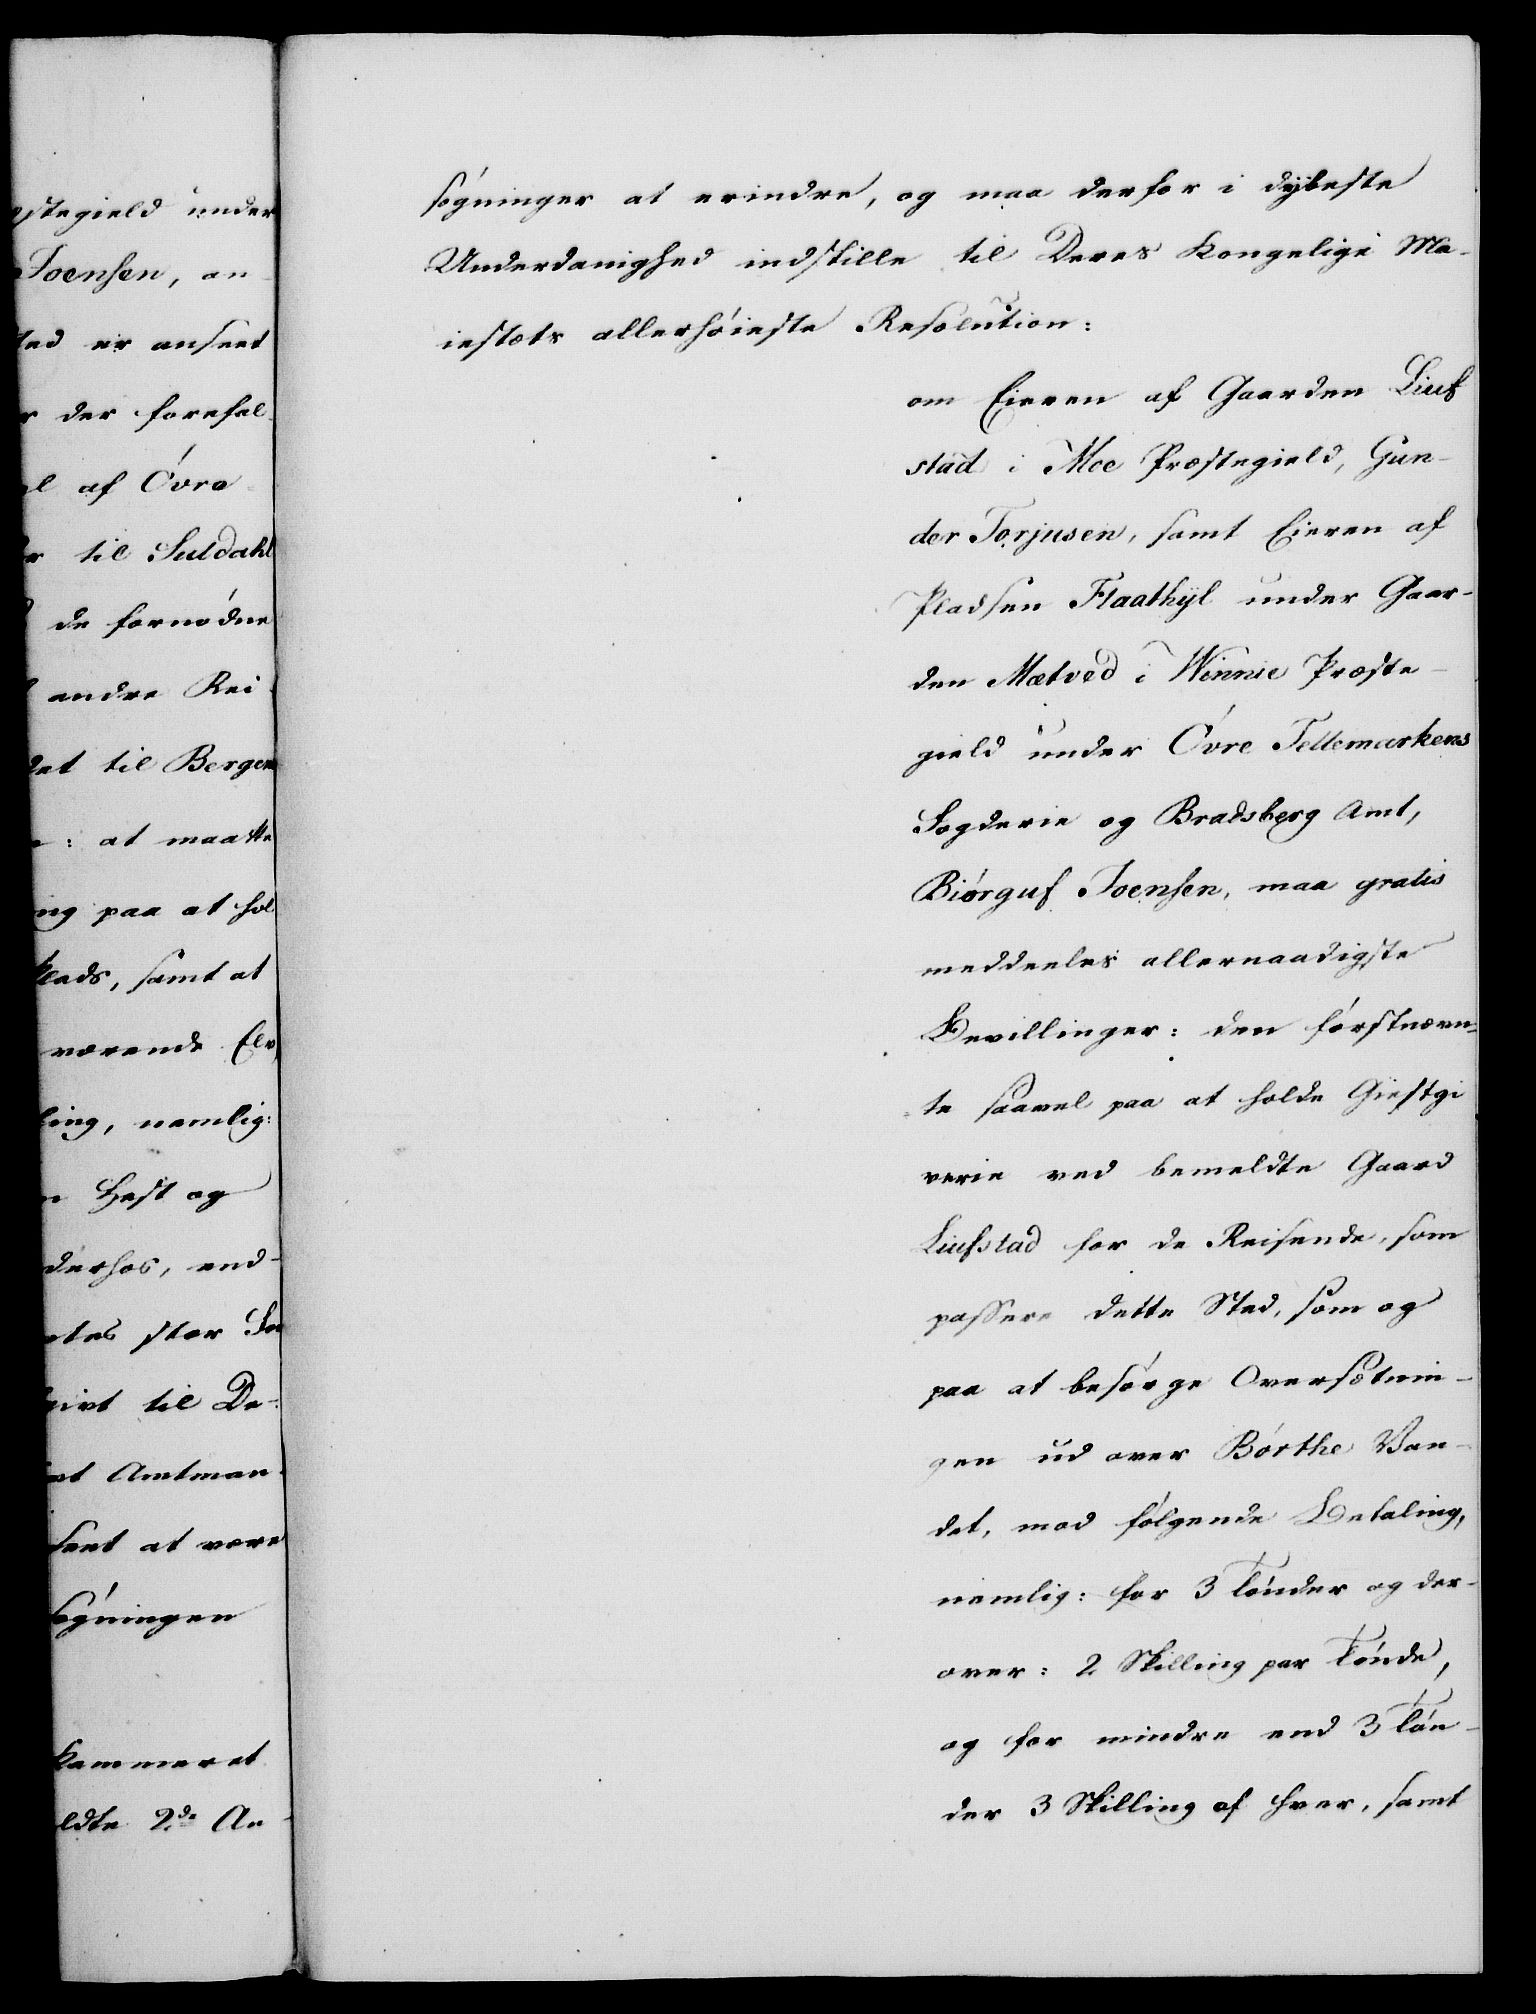 estegield under
Joensen, an-
sted er anseet
r der forefal-
el af Øvre
er til Suldahl
de fornødne
andre Rei-
det til Bergen
: at maatte
ing paa at hol
Plads, samt at
værende Elv,
ling, nemlig:
n Hest og
derhos, end-
stor
givt til De-
et Amtman-
seet at være
søgningen
Kammeret
ldte 2de An-
søgninger at erindre, og maa derfor i dybeste
Underdanighed indstille til Deres Kongelige Ma-
iestæts allerhøieste Resolution:
om Eieren af Gaarden Liuf
stad i Moe Præstegield, Gun-
der Torjusen, samt Eieren af
Pladsen Flaathyl under Gaar-
den Mætved i Winnie Præste-
gield under Øvre Tellemarkens
Fogderie og Bradsberg Amt,
Biørguf Joensen, maa gratis
meddeeles allernaadigste
Bevillinger: den førstnævn-
te saavel paa at holde Giestgi
verie ved bemeldte Gaard
Liufstad for de Reisende, som
passere dette Sted, som og
paa at besørge Oversætnin-
gen ud over Børthe Van-
det, mod følgende Betaling,
nemlig: for 3 Tønder og der-
over: 2 Skilling par Tønde,
og for mindre end 3 Tøn-
der 3 Skilling af hver, samt